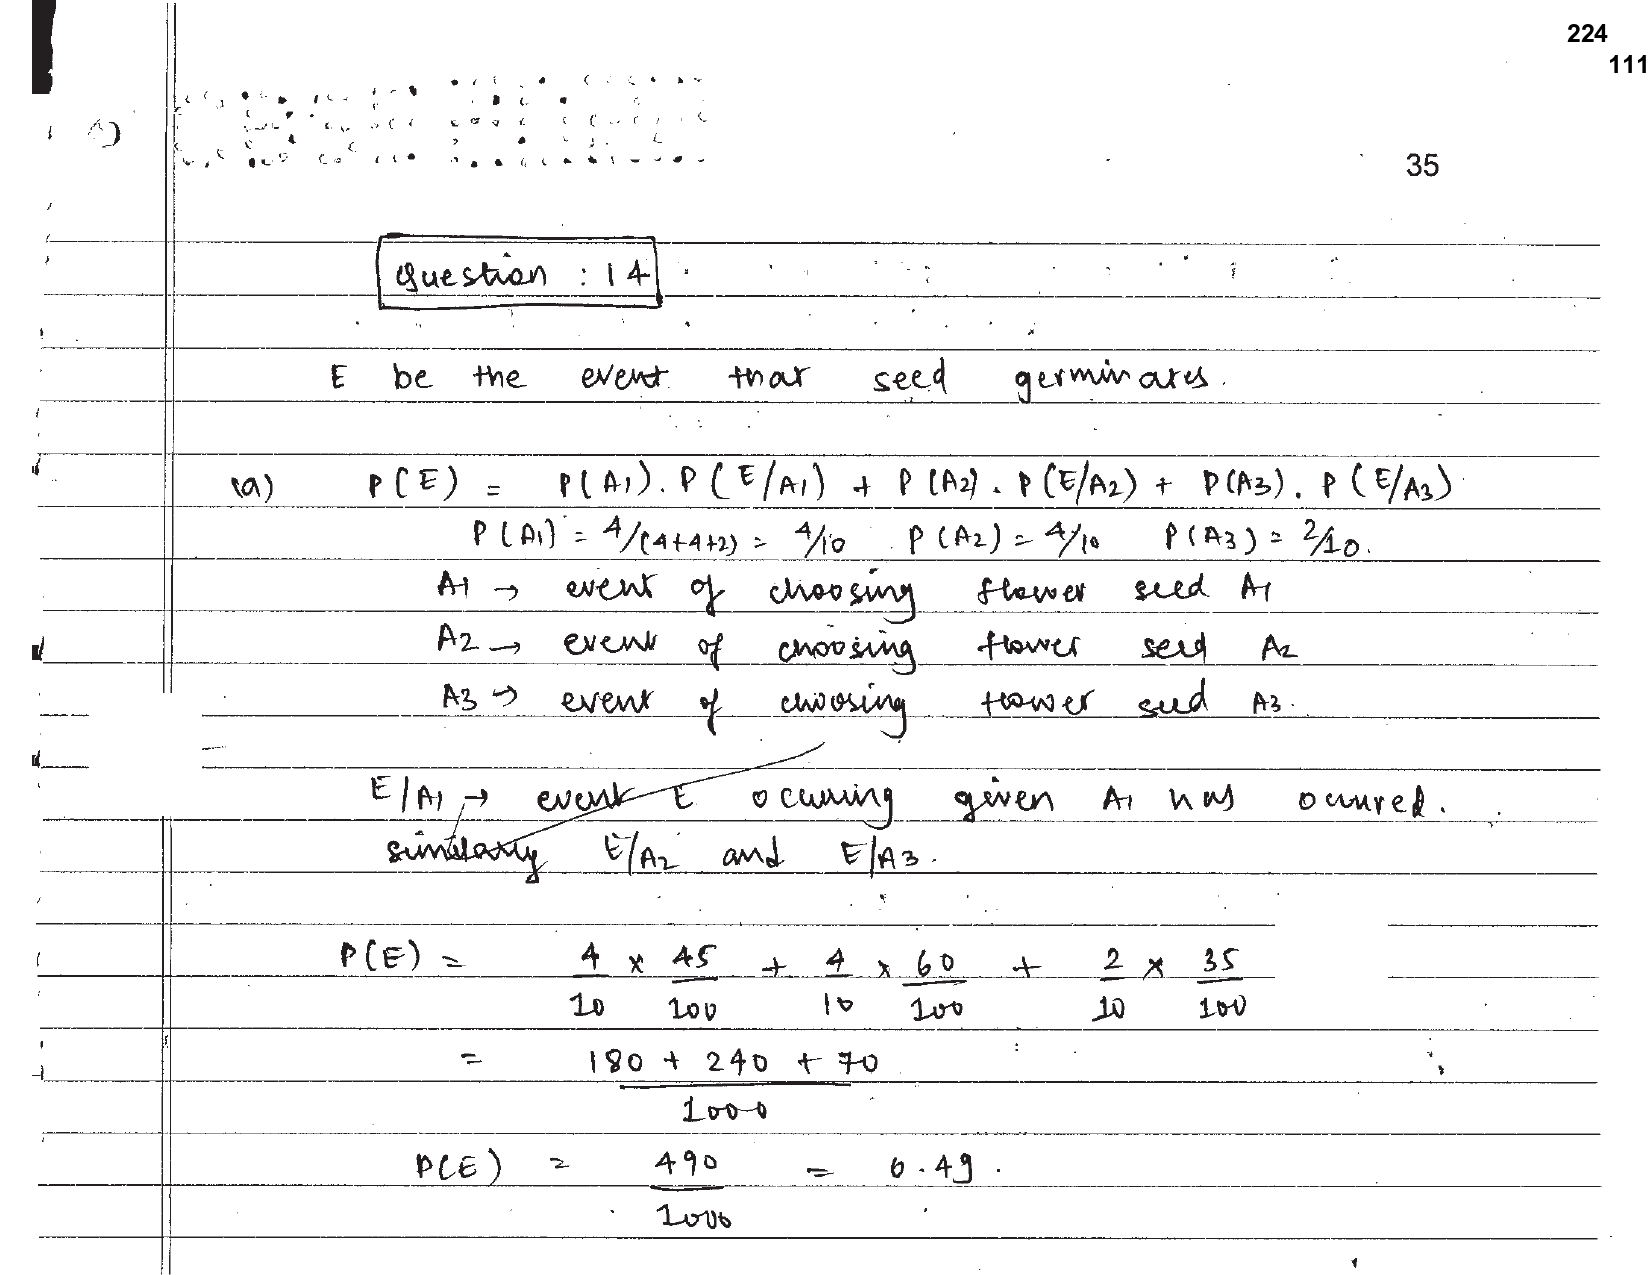 224
111
35
Question : 14
E be the event that seed germinates.
(a) P(E) = P(A1). P(E/A1) + P(A2). P(E/A2) + P(A3). P(E/A3)
P(A1) = 4/(4+4+2) = 4/10 P(A2) = 4/10 P(A3) = 2/10.
A1 → event of choosing flower seed A1
A2 → event of choosing flower seed A2
A3 → event of choosing flower seed A3.
E/A1 → event E occuring given A1 has occured.
similarly E/A2 and E/A3.
P(E) = 4/10 × 45/100 + 4/10 × 60/100 + 2/10 × 35/100
= 180 + 240 + 70 / 1000
P(E) = 490/1000 = 0.49.